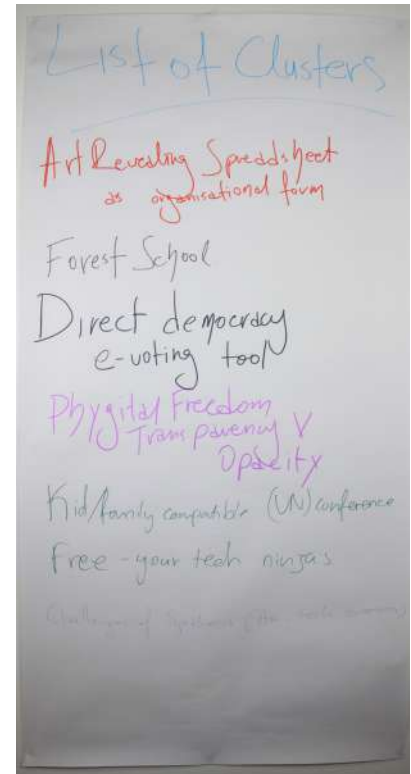 List of Clusters
Art Revealing Spreadsheet
as organisational form
Forest School
Direct democracy
e-voting tool
Phygital Freedom
Transparency V
Opacity
Kid/family compatible (UN)conference
Free-your tech ninjas
Challenges of